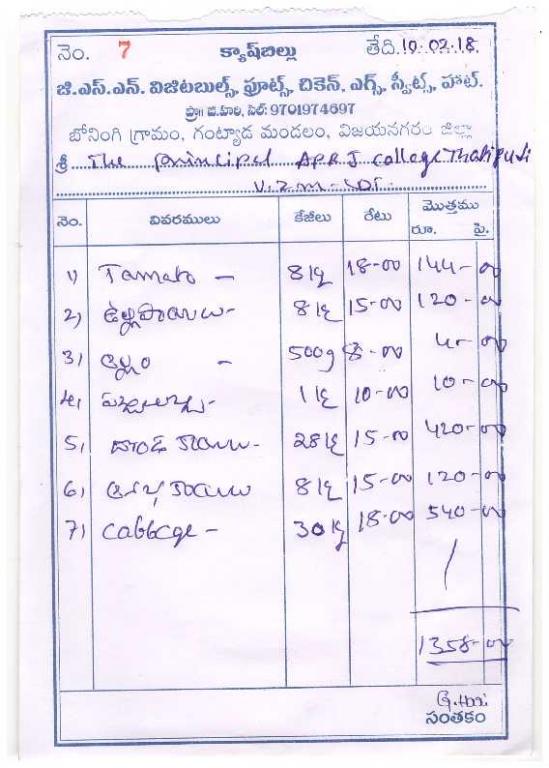 నెం. 7 క్యాష్‌బిల్లు తేది. 10.02.18.
జి.ఎస్.ఎన్. విజిటబుల్స్, ఫ్రూట్స్, చికెన్, ఎగ్స్, స్వీట్స్, హాట్.
ప్రొ॥ జి.హరి, సెల్: 9701974697
బోనింగి గ్రామం, గంట్యాడ మండలం, విజయనగరం జిల్లా
శ్రీ The principal A.P.R.J. College Thatipudi
V.Z.M - DDT.
నెం. వివరములు కేజీలు రేటు మొత్తము
రూ. పై.
1) Tamato - 8 kg 18-00 144-00
2) ఉల్లిపాయలు- 8 kg 15-00 120-00
3) అల్లం - 500g 8-00 4-00
4) పచ్చిమిర్చి- 1 kg 10-00 10-00
5) దొండకాయలు- 28 kg 15-00 420-00
6) కాయలు 8 kg 15-00 120-00
7) Cabbage - 30 kg 18-00 540-00
1358-00
G. Hari
సంతకం